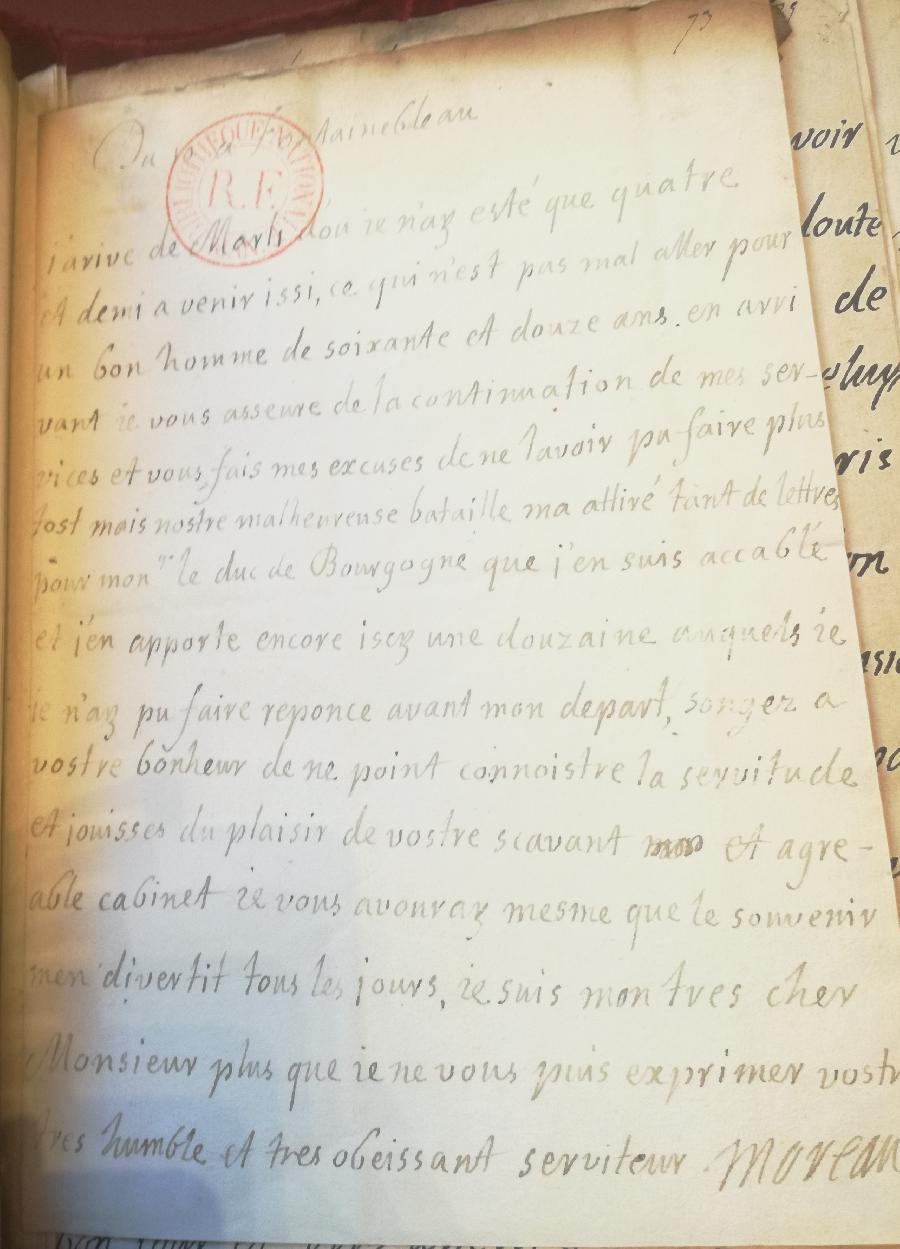 73
Du a Fontainebleau
BIBLIOTHEQUE NATIONALE
R.F.
j'arive de Marli dou ie n'ay esté que quatre
et demi a venir issi, ce qui n'est pas mal aller pour
un bon homme de soixante et douze ans. en arri
vant ie vous asseure de la continuation de mes ser-
vices et vous fais mes excuses de ne lavoir pu faire plus
tost mais nostre malheureuse bataille ma attiré tant de lettres
pour mon gr le duc de Bourgogne que j'en suis accablé
et j'en apporte encore isey une douzaine auquels ie
ie n'ay pu faire reponce avant mon depart, songez a
vostre bonheur de ne point connoistre la servitude
et jouisses du plaisir de vostre scavant et agre-
able cabinet ie vous avouray mesme que le souvenir
men divertit tous les jours, ie suis mon tres cher
Monsieur plus que ie ne vous puis exprimer vostr
tres humble et tres obeissant serviteur Moreau
voir
loute
de
ris